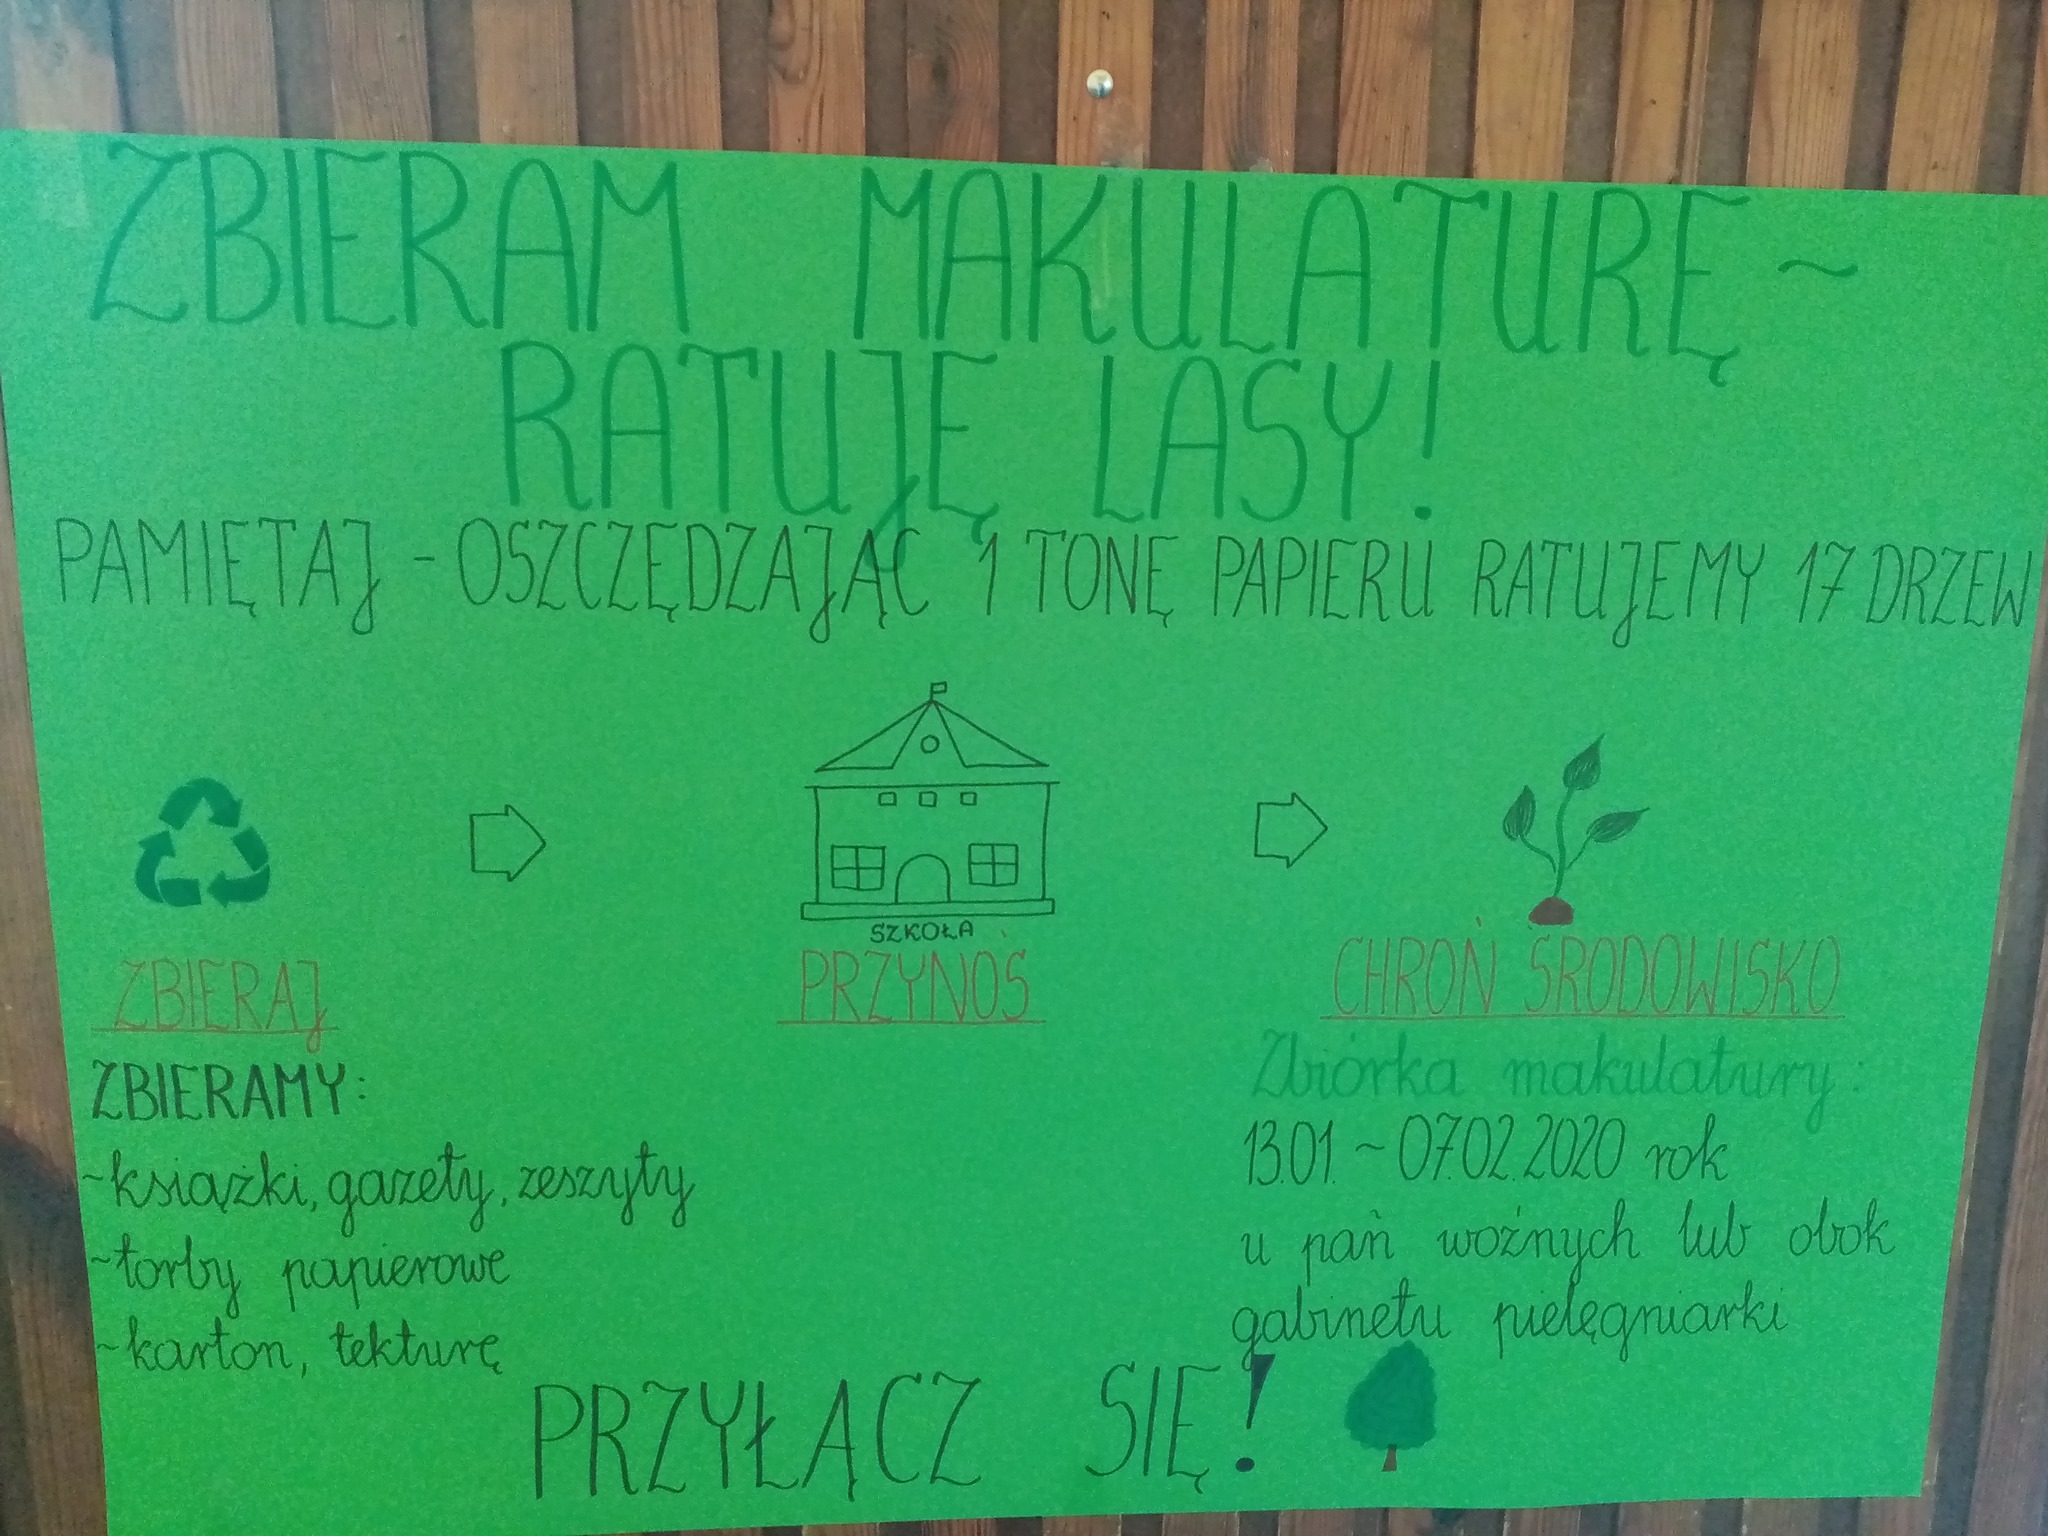 ZBIERAM MAKULATURĘ ~
RATUJĘ LASY!
PAMIĘTAJ - OSZCZĘDZAJĄC 1 TONĘ PAPIERU RATUJEMY 17 DRZEW
SZKOŁA
ZBIERAJ
PRZYNOŚ
CHROŃ ŚRODOWISKO
ZBIERAMY:
~książki, gazety, zeszyty
~torby papierowe
~karton, tekturę
Zbiórka makulatury:
13.01. ~ 07.02.2020 rok
u pań woźnych lub obok
gabinetu pielęgniarki
PRZYŁĄCZ SIĘ!